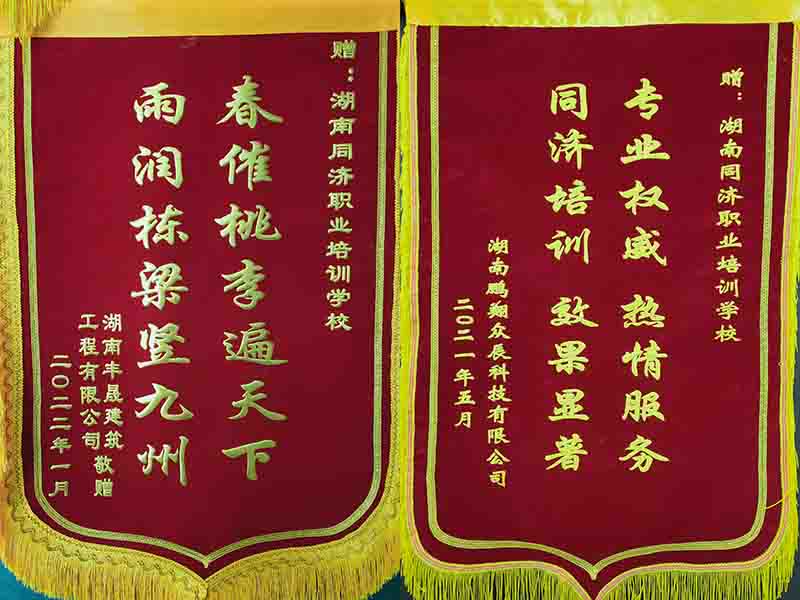 赠：湖南同济职业培训学校
春催桃李遍天下
雨润栋梁竖九州
湖南丰晟建筑
工程有限公司 敬赠
二〇二二年一月
赠：湖南同济职业培训学校
专业权威 热情服务
同济培训 效果显著
湖南鹏翔众辰科技有限公司
二〇二一年五月